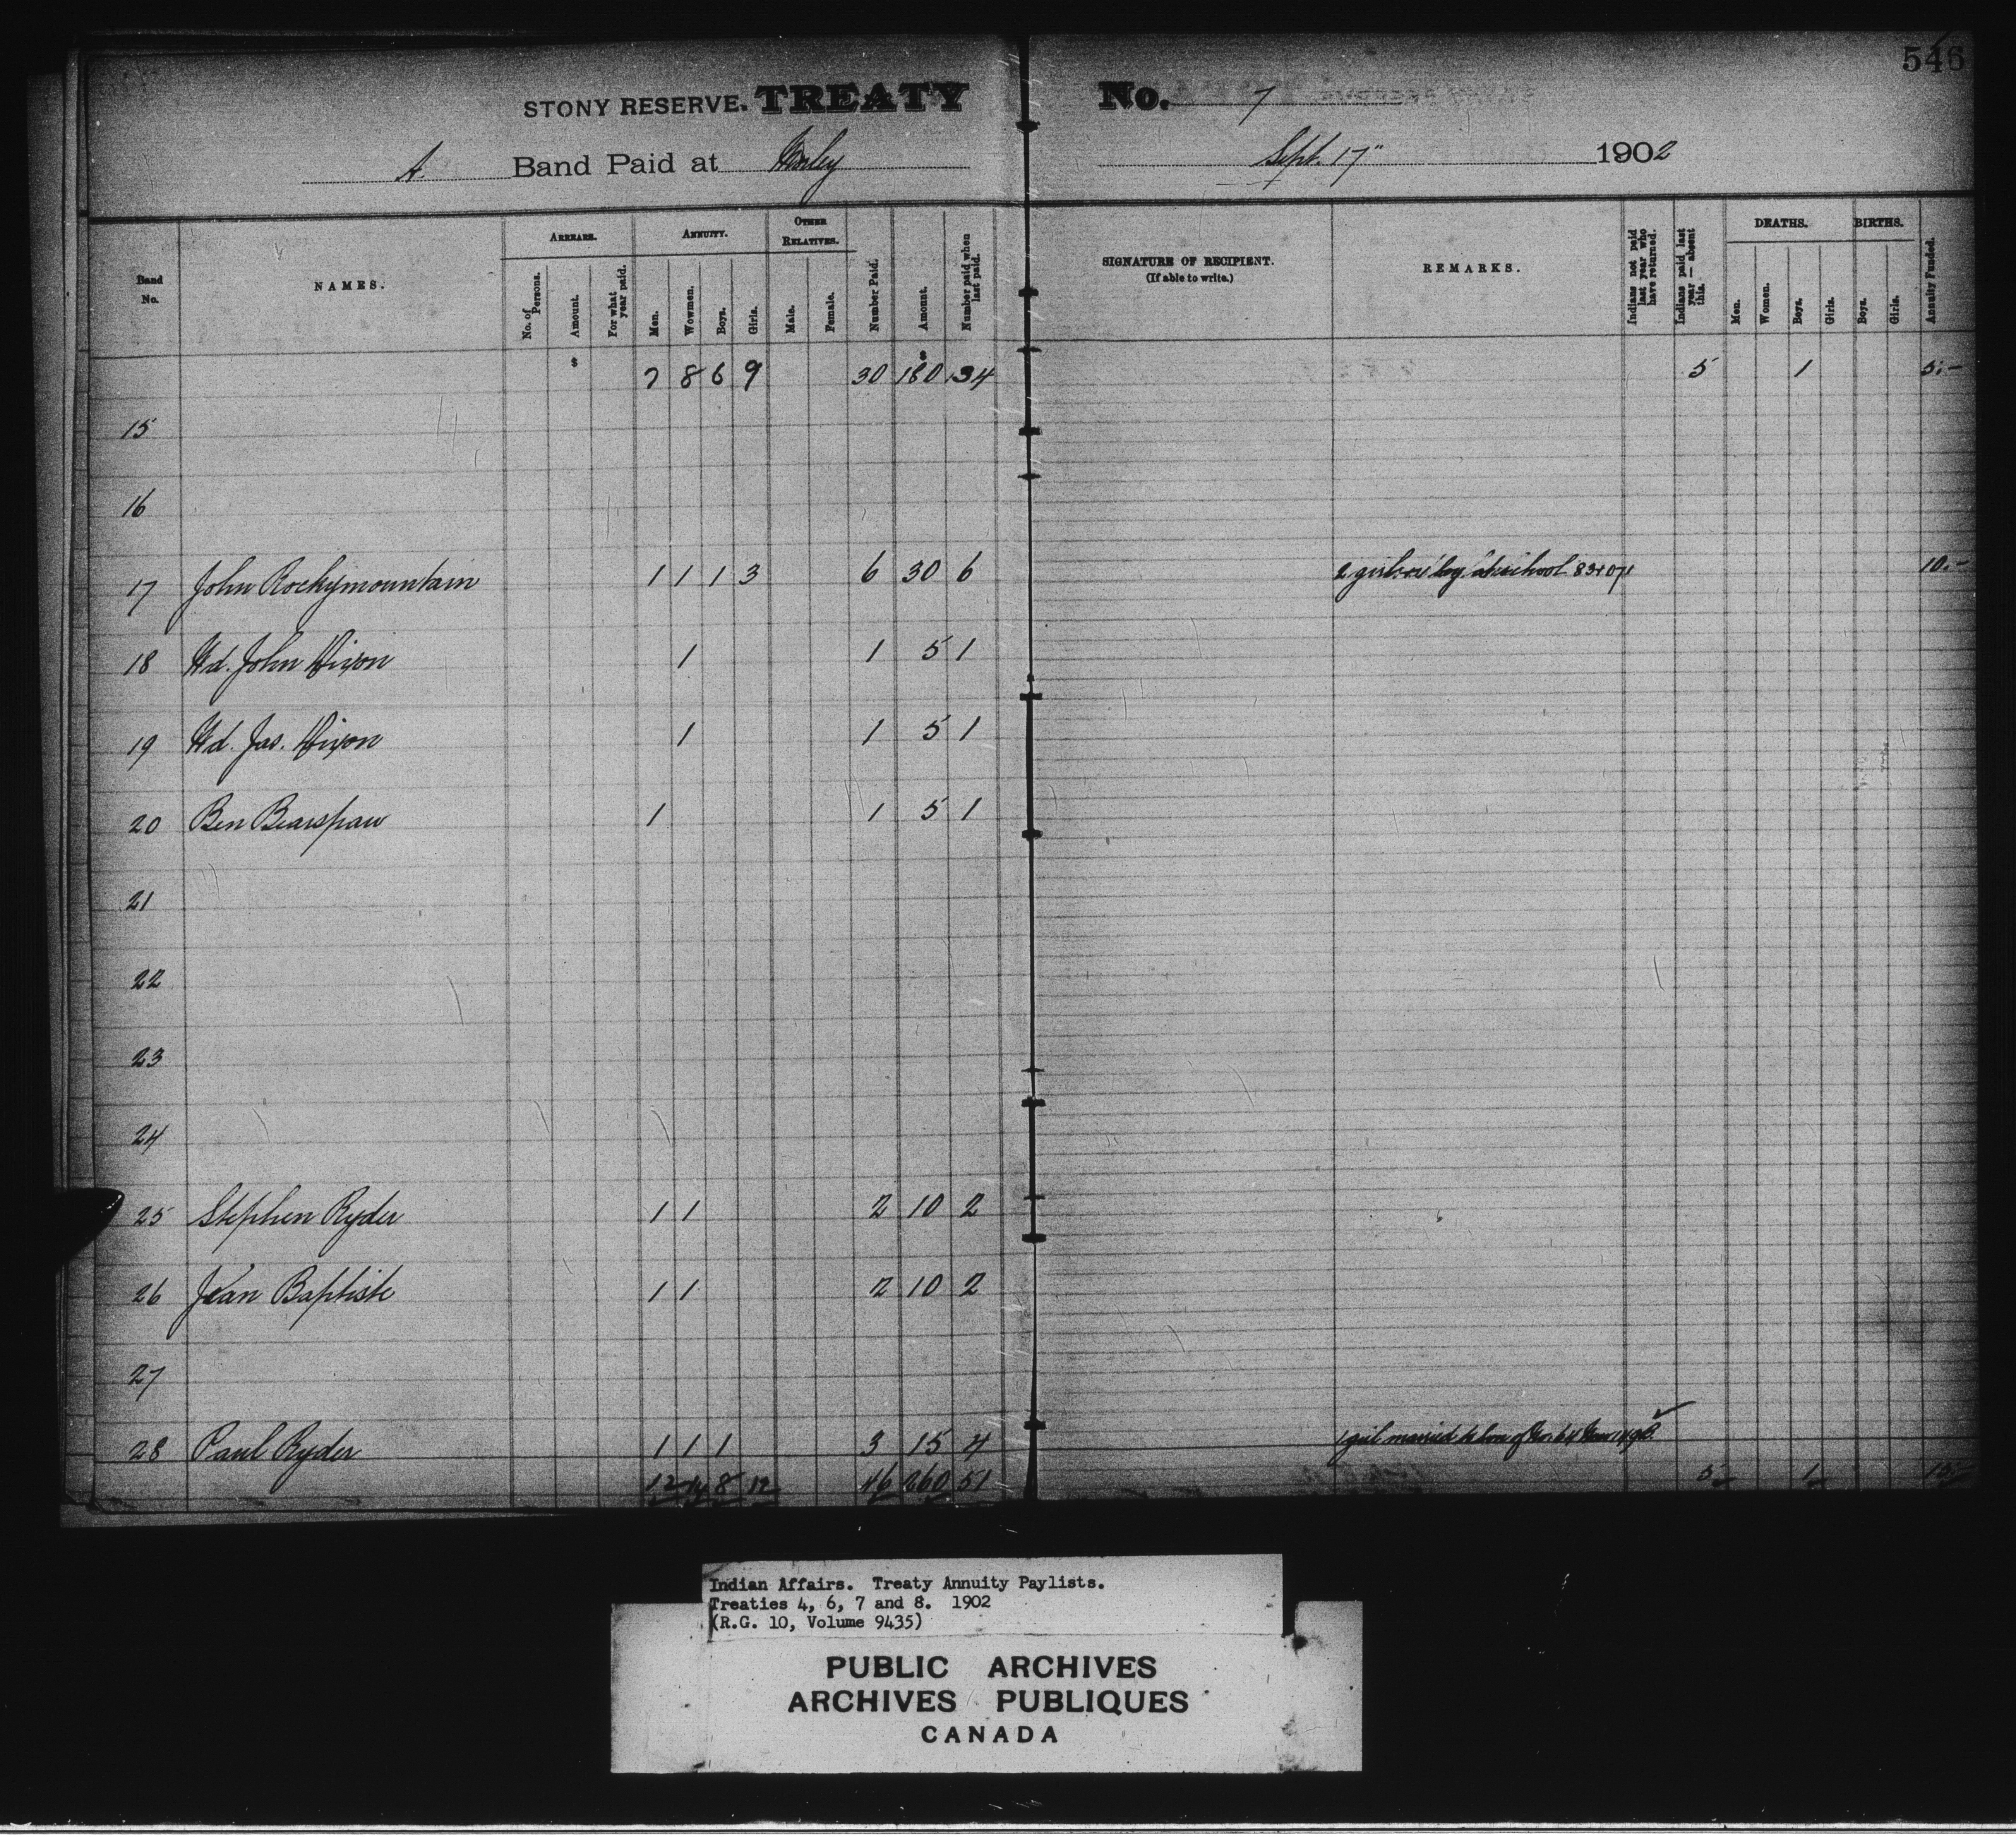 546
STONY RESERVE. TREATY No. 7
A. Band Paid at Morley Sept. 17" 1902
Band No. NAMES. ARREARS. No. of Persons. Amount. For what year paid. ANNUITY. Men. Wowmen. Boys. Girls. OTHER RELATIVES. Male. Female. Number Paid. Amount. Number paid when last paid. SIGNATURE OF RECIPIENT. (If able to write.) REMARKS. Indians not paid last year who have returned. Indians paid last year — absent this. DEATHS. Men. Women. Boys. Girls. BIRTHS. Boys. Girls. Annuity Funded.
$ 7 8 6 9 30 $ 180 34 5 1 5.-
15
16
17 John Rockymountain 1 1 1 3 6 30 6 2 girls at school 10.-
18 Wd. John Dixon 1 1 5 1
19 Wd. Jas. Dixon 1 1 5 1
20 Ben Bearspaw 1 1 5 1
21
22
23
24
25 Stephen Ryder 1 1 2 10 2
26 Jean Baptiste 1 1 2 10 2
27
28 Paul Ryder 1 1 1 3 15 4 1 girl married to son of No. 64
12 14 8 12 46 260 51 5 1 15.-
Indian Affairs. Treaty Annuity Paylists.
Treaties 4, 6, 7 and 8. 1902
(R.G. 10, Volume 9435)
PUBLIC ARCHIVES
ARCHIVES PUBLIQUES
CANADA